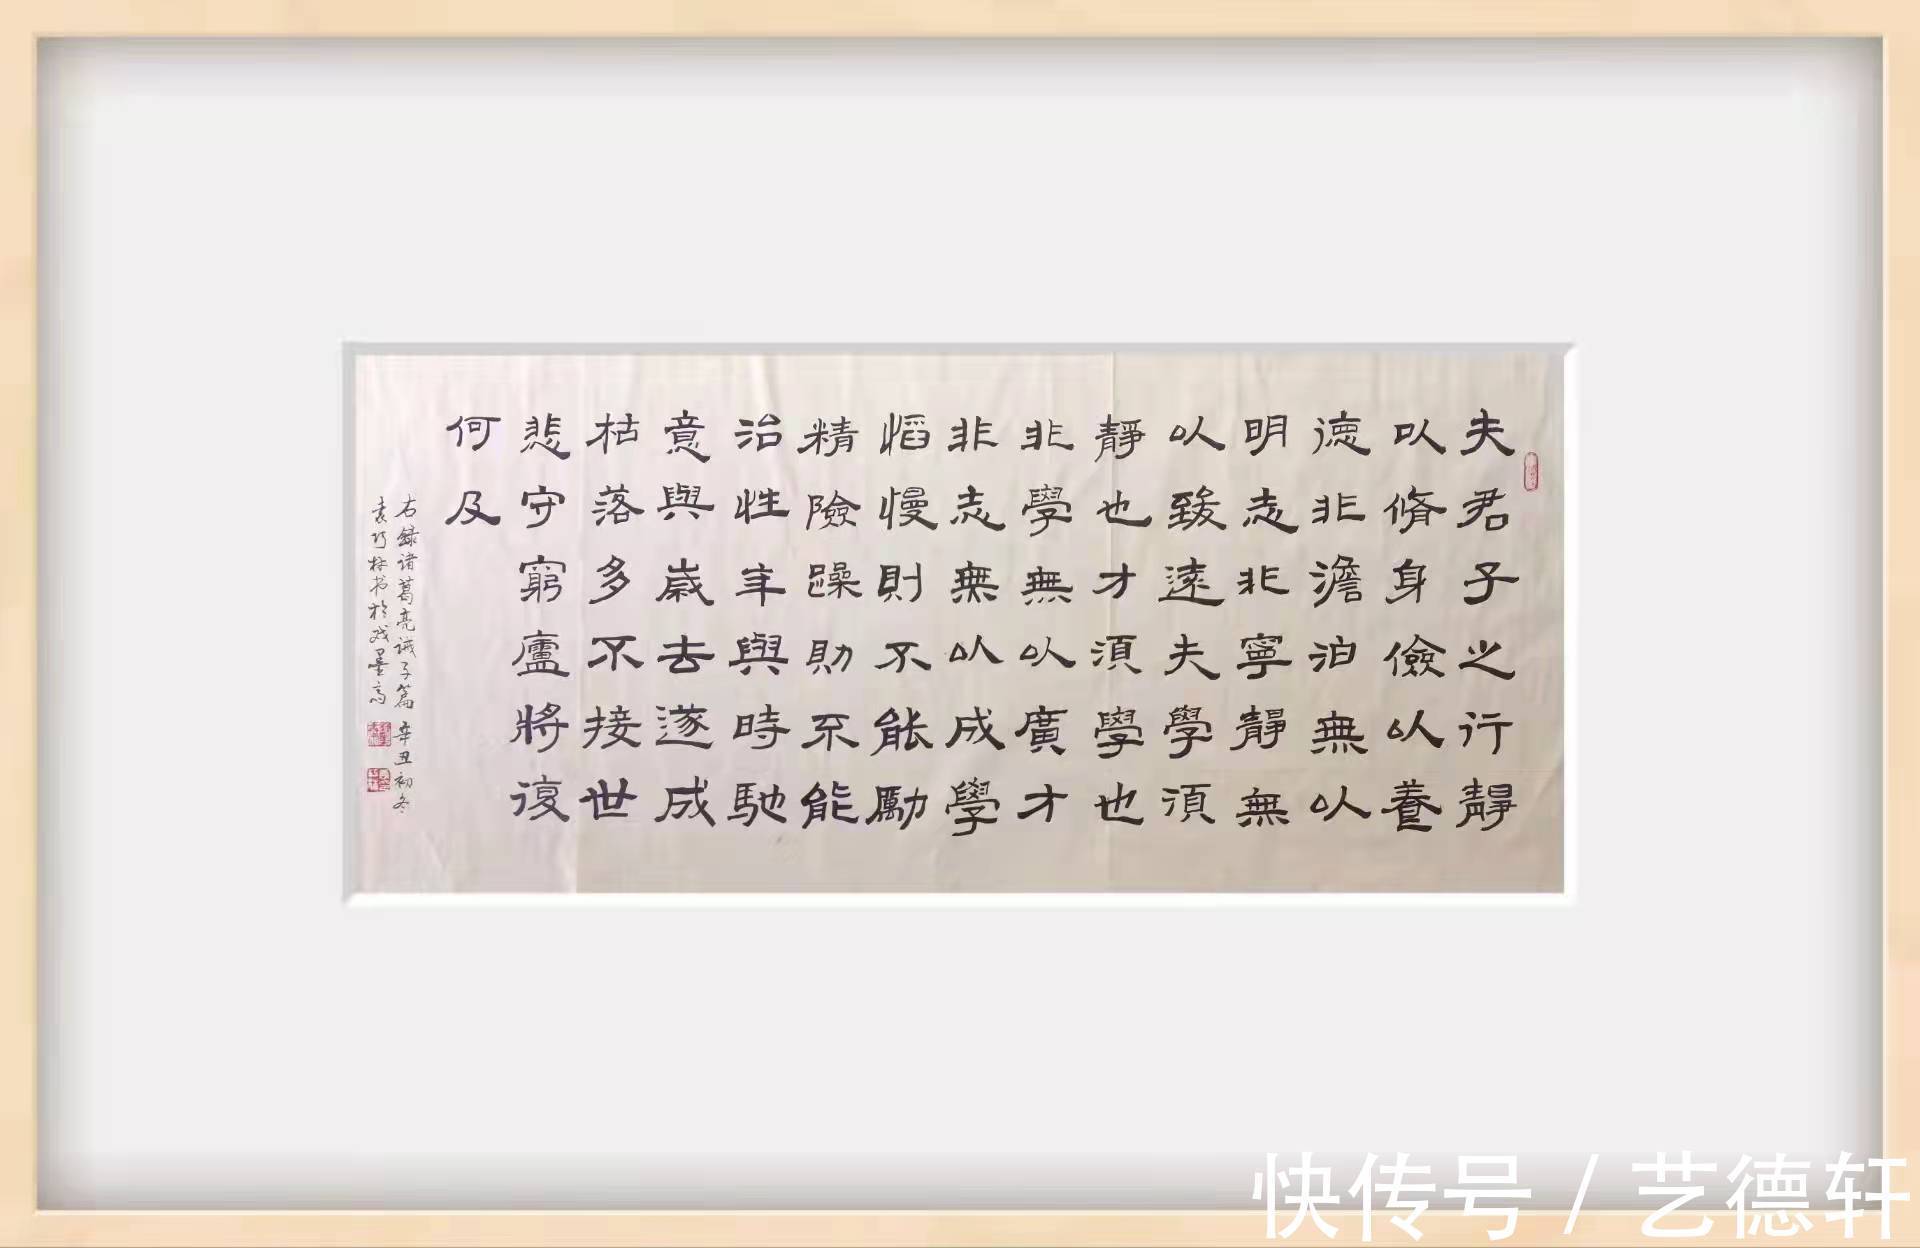 夫君子之行靜
以脩身儉以養
德非澹泊無以
明志非寧靜無
以致遠夫學須
靜也才須學也
非學無以廣才
非志無以成學
慆慢則不能勵
精險躁則不能
治性年與時馳
意與歲去遂成
枯落多不接世
悲守窮廬將復
何及
右録诸葛亮诫子篇 辛丑初冬
袁巧 书於戏墨斋
快传号 / 艺德轩